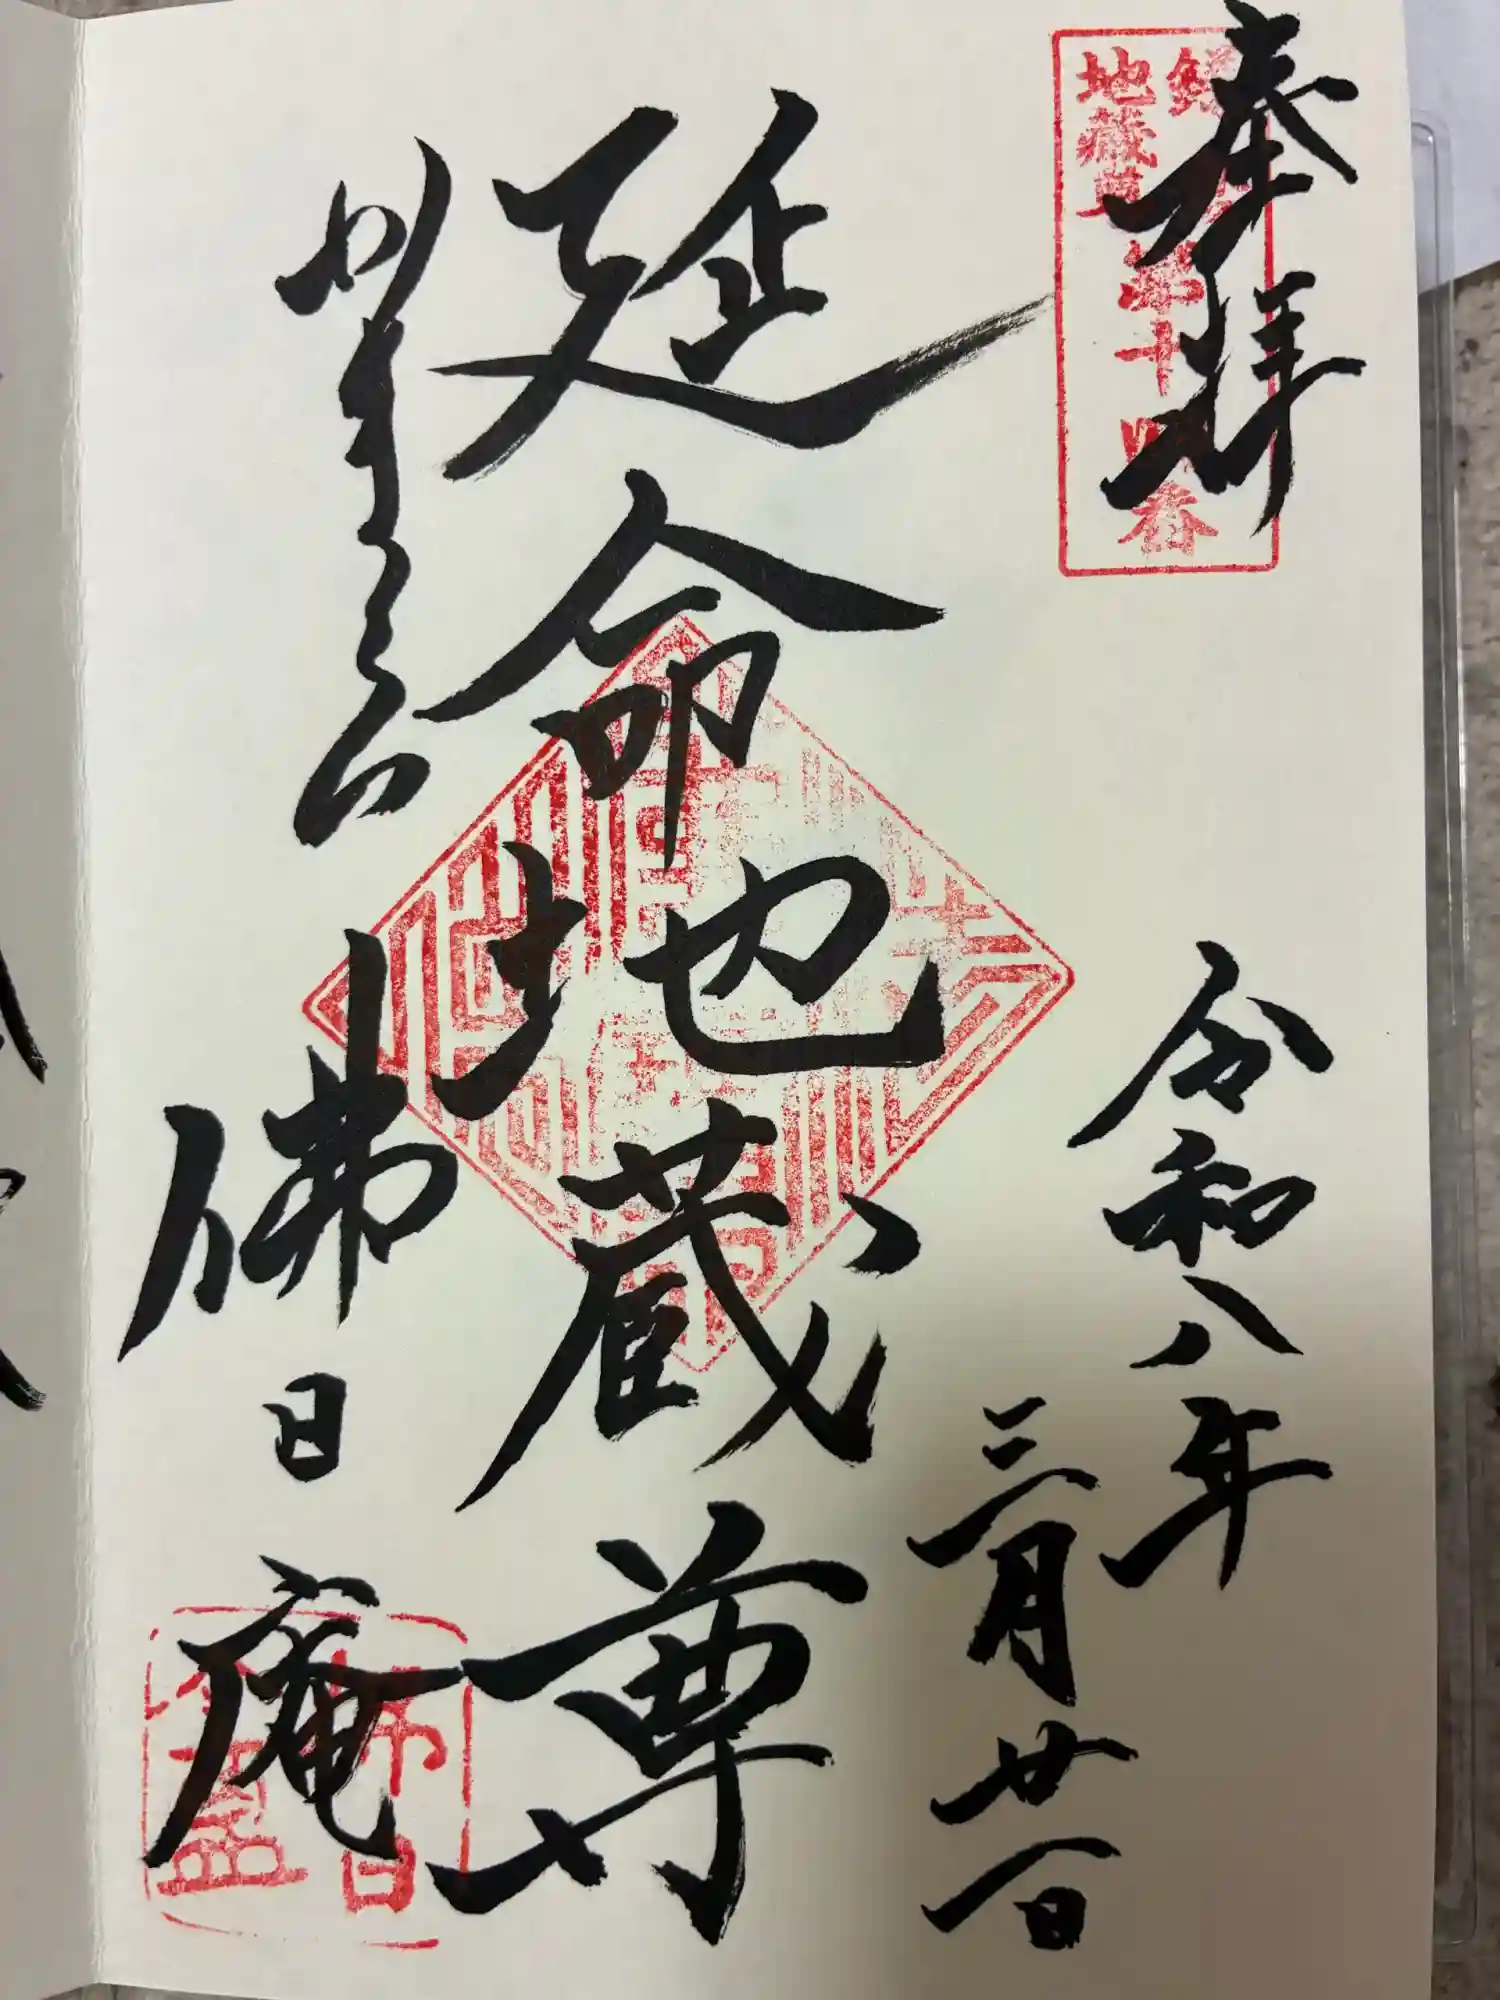 奉拝
地蔵尊第十四番
令和八年
三月廿一日
延命地蔵尊
かまくら
佛日庵